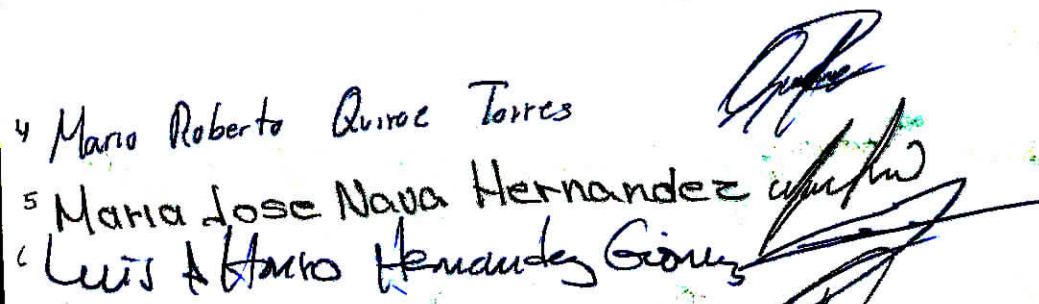 4 Mario Roberto Quiroz Torres
5 Maria Jose Nava Hernandez
6 Luis Alfonso Hernandez Gómez